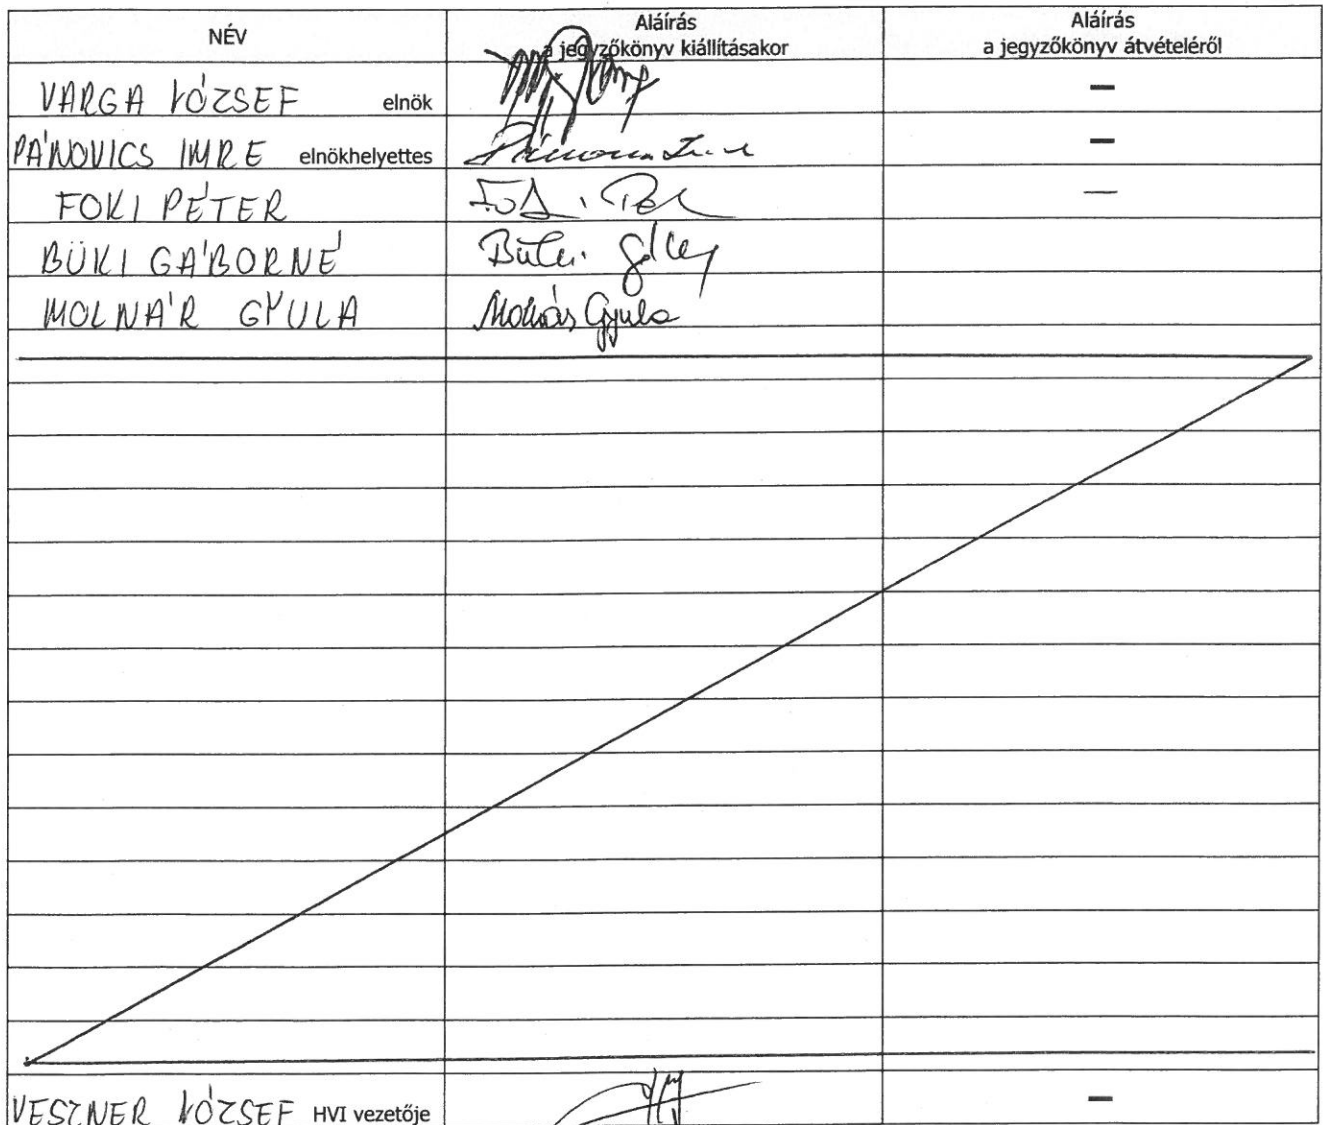 NÉV
Aláírás
a jegyzőkönyv kiállításakor
Aláírás
a jegyzőkönyv átvételéről
VARGA JÓZSEF elnök –
PÁNOVICS IMRE elnökhelyettes –
FOKI PÉTER —
BÜKI GÁBORNÉ
MOLNÁR GYULA Molnár Gyula
VESZNER JÓZSEF HVI vezetője –